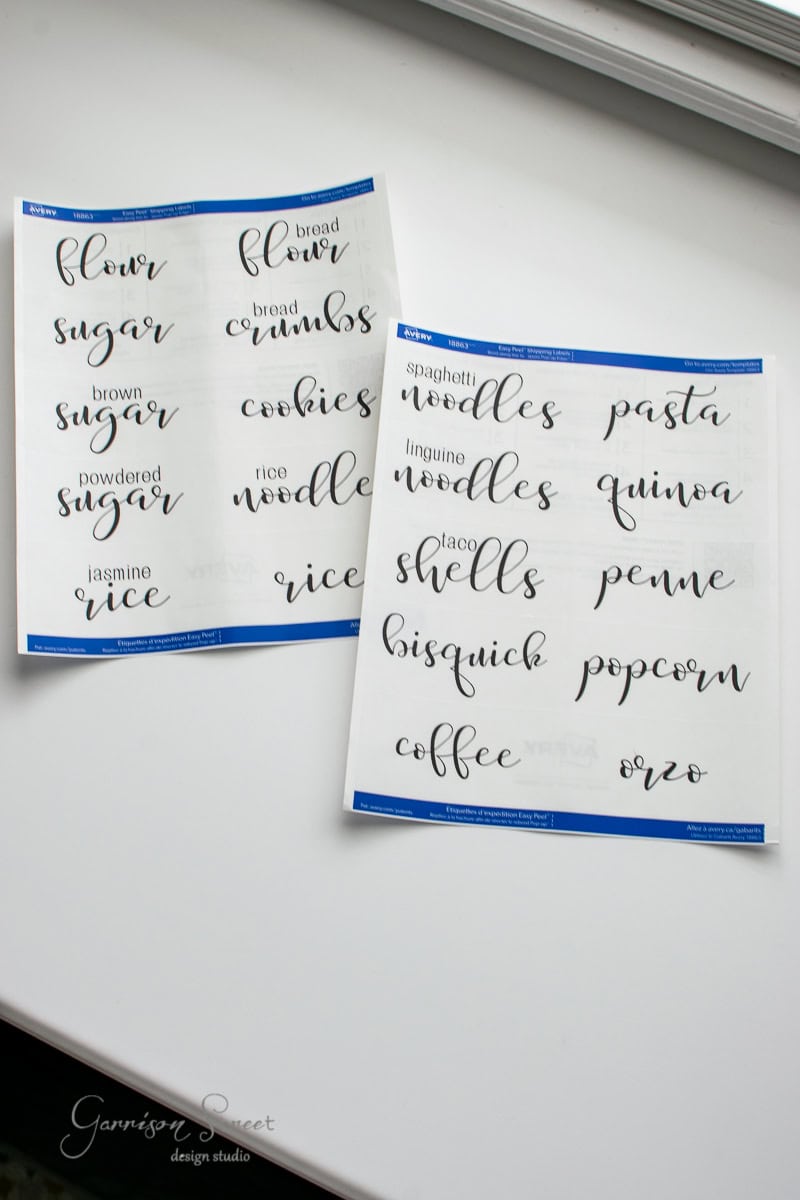 AVERY 18863 Easy Peel Shipping Labels Go to avery.com/templates
flour
sugar
brown
sugar
powdered
sugar
jasmine
rice
bread
flour
bread
crumbs
cookies
rice
noodle
rice
Étiquettes d'expédition Easy Peel
Pat: avery.com/patents
AVERY 18863 Easy Peel Shipping Labels Go to avery.com/templates
spaghetti
noodles
linguine
noodles
taco
shells
bisquick
coffee
pasta
quinoa
penne
popcorn
orzo
Étiquettes d'expédition Easy Peel Allez à avery.ca/gabarits
Pat: avery.com/patents
Garrison Street
design studio